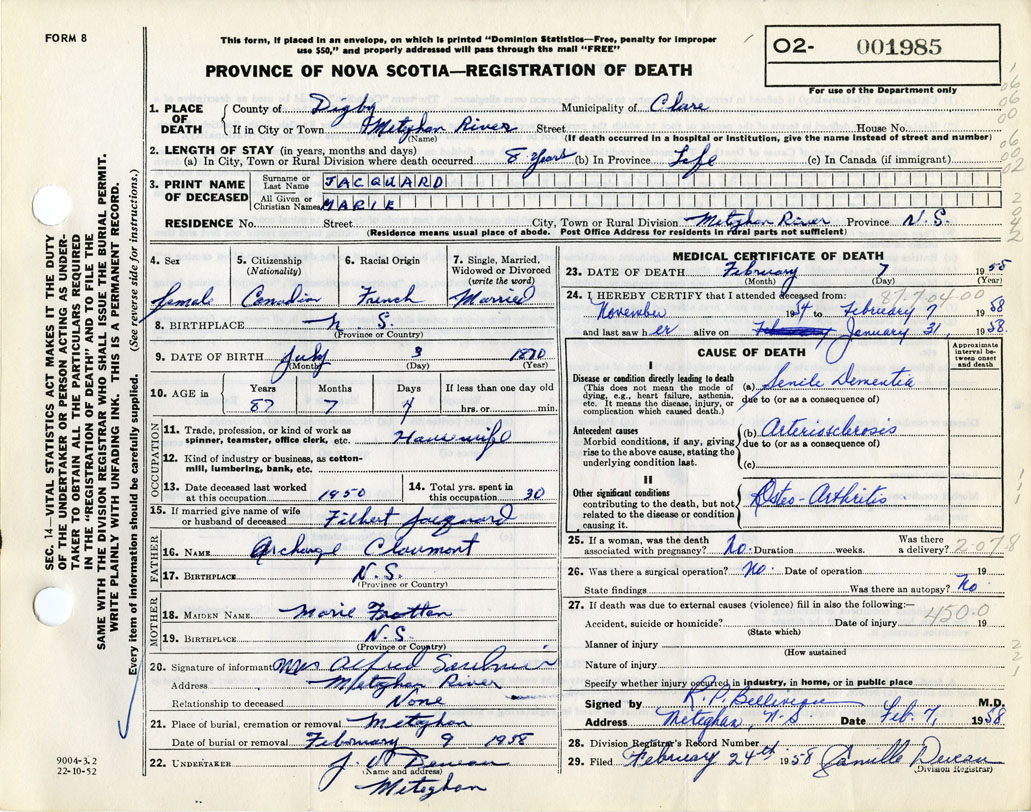 FORM 8
This form, if placed in an envelope, on which is printed "Dominion Statistics—Free, penalty for improper
use $50," and properly addressed will pass through the mail "FREE"
PROVINCE OF NOVA SCOTIA—REGISTRATION OF DEATH
O2- 001985
For use of the Department only
1. PLACE OF DEATH { County of Digby Municipality of Clare
If in City or Town Meteghan River Street House No.
(Name) (If death occurred in a hospital or institution, give the name instead of street and number)
2. LENGTH OF STAY (in years, months and days)
(a) In City, Town or Rural Division where death occurred 8 years (b) In Province Life (c) In Canada (if immigrant)
3. PRINT NAME OF DECEASED
Surname or Last Name JACQUARD
All Given or Christian Names MARIE
RESIDENCE No. Street City, Town or Rural Division Meteghan River Province N.S.
(Residence means usual place of abode. Post Office Address for residents in rural parts not sufficient)
4. Sex female
5. Citizenship (Nationality) Canadian
6. Racial Origin French
7. Single, Married, Widowed or Divorced (write the word) Married
8. BIRTHPLACE N.S.
(Province or Country)
9. DATE OF BIRTH July 3 1870
(Month) (Day) (Year)
10. AGE in Years 87 Months 7 Days 4 If less than one day old hrs. or min.
OCCUPATION
11. Trade, profession, or kind of work as
spinner, teamster, office clerk, etc. Housewife
12. Kind of industry or business, as cotton-
mill, lumbering, bank, etc.
13. Date deceased last worked
at this occupation 1950
14. Total yrs. spent in
this occupation 30
15. If married give name of wife
or husband of deceased Filbert Jacquard
FATHER
16. NAME Archange Clairmont
17. BIRTHPLACE N.S.
(Province or Country)
MOTHER
18. MAIDEN NAME Marie Frottan
19. BIRTHPLACE N.S.
(Province or Country)
20. Signature of informant Mrs Alfred
Address Meteghan River
Relationship to deceased None
21. Place of burial, cremation or removal Meteghan
Date of burial or removal February 9 1958
22. UNDERTAKER J. W. Deveau
(Name and address)
Meteghan
MEDICAL CERTIFICATE OF DEATH
23. DATE OF DEATH February 7 1958
(Month) (Day) (Year)
87-7-04-00
24. I HEREBY CERTIFY that I attended deceased from:
November 1954 to February 7 1958
and last saw her alive on February January 31 1958
CAUSE OF DEATH
Approximate interval between onset and death
I
Disease or condition directly leading to death
(This does not mean the mode of
dying, e.g., heart failure, asthenia,
etc. It means the disease, injury, or
complication which caused death.)
(a) Senile Dementia
due to (or as a consequence of)
Antecedent causes
Morbid conditions, if any, giving
rise to the above cause, stating the
underlying condition last.
(b) Arteriosclrosis
due to (or as a consequence of)
(c)
II
Other significant conditions
contributing to the death, but not
related to the disease or condition
causing it.
Osteo-Arthritis
25. If a woman, was the death
associated with pregnancy? No. Duration weeks. Was there
a delivery?
2-078
26. Was there a surgical operation? No. Date of operation 19
State findings Was there an autopsy? No.
27. If death was due to external causes (violence) fill in also the following:—
450-0
Accident, suicide or homicide? Date of injury 19
(State which)
Manner of injury
(How sustained
Nature of injury
Specify whether injury occurred in industry, in home, or in public place
Signed by R.P. Belliveau M.D.
Address Meteghan, N.S. Date Feb. 7, 1958
28. Division Registrar's Record Number
29. Filed February 24th 1958 Camille Deveau
(Division Registrar)
SEC. 14—VITAL STATISTICS ACT MAKES IT THE DUTY
OF THE UNDERTAKER OR PERSON ACTING AS UNDER-
TAKER TO OBTAIN ALL THE PARTICULARS REQUIRED
IN THE "REGISTRATION OF DEATH" AND TO FILE THE
SAME WITH THE DIVISION REGISTRAR WHO SHALL ISSUE THE BURIAL PERMIT.
WRITE PLAINLY WITH UNFADING INK. THIS IS A PERMANENT RECORD.
Every item of information should be carefully supplied. (See reverse side for instructions.)
9004-3.2
22-10-52